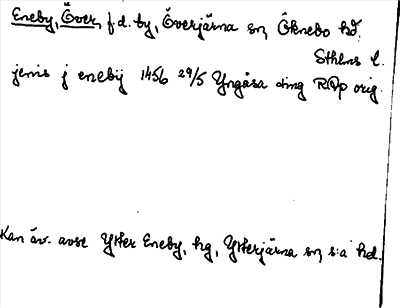 Eneby, Över, f.d. by, Överjärna sn, Öknebo hd.
Sthlms l.
jenis j enebij 1456 29/5 Yngåsa ding RAp orig.
Kan äv. avse Ytter Eneby, hg, Ytterjärna sn, s:a hd.